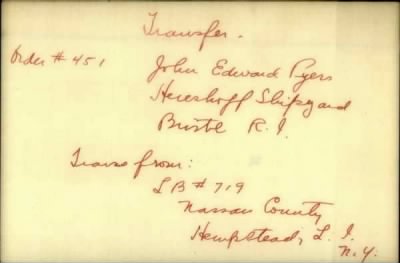 Transfer.
Order # 451
John Edward Pyers
Hereshoff Shipyard
Bristol R.I.
Trans from:
LB # 719
Nassau County
Hempstead, L.I.
N.Y.